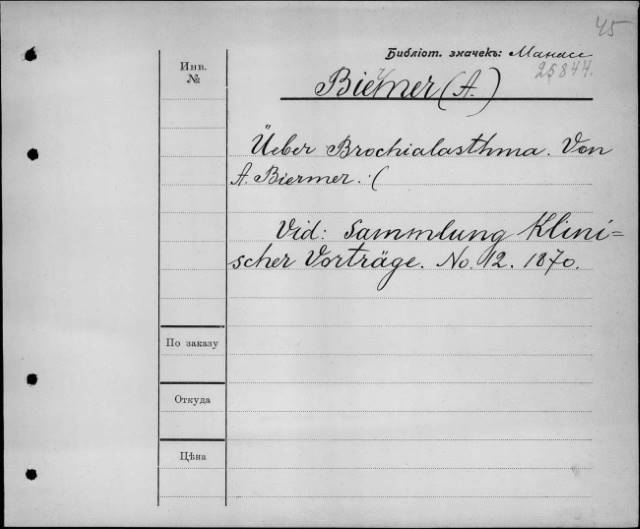 45
Библіот. значекъ: Манасс
25844.
Инв.
№
Biermer (A.)
Üeber Brochialasthma. Von
A. Biermer. :(
Vid: Sammlung Klini=
scher Vorträge. No. 12. 1870.
По заказу
Откуда
Цѣна